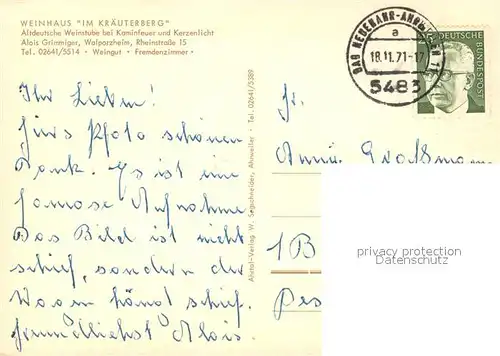 WEINHAUS "IM KRÄUTERBERG"
Altdeutsche Weinstube bei Kaminfeuer und Kerzenlicht
Alois Grimmiger, Walporzheim, Rheinstraße 15
Tel. 02641/5514 • Weingut • Fremdenzimmer
Ihr Lieben!
fürs Photo schönen
Dank. Es ist eine
famose Aufnahme
Das Bild ist nicht
schief, sondern der
Wagen hängt schief.
freundlichst Alois.
Ahrtal-Verlag W. Segschneider, Ahrweiler • Tel. 02641/5389
BAD NEUENAHR-AHRWEILER 1
a
18.11.71-17
5483
DEUTSCHE
BUNDESPOST
Fr.
Annie Großmann
1 B
privacy protection
Datenschutz